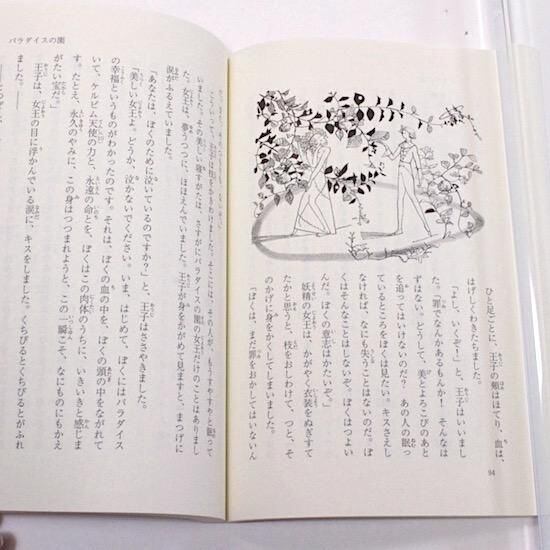 ひと足ごとに、王子の頬はほてり、血は、
はげしくわきたちました。
「よし、いくぞ!」と、王子はいいまし
た。「罪でなんかあるもんか! そんなは
ずはない。どうして、美とよろこびのあと
を追ってはいけないのだ? あの人の眠っ
ているところをぼくは見たい。キスさえし
なければ、なにも失うことはないのだ。ぼ
くはそんなことはしないぞ。ぼくはつよい
んだ。ぼくの意志はかたいぞ。」
妖精の女王は、かがやく衣装をぬぎすて
たかと思うと、枝をおしわけて、つと、そ
のかげに身をかくしてしまいました。
「ぼくは、まだ罪をおかしてはいないん
94
パラダイスの園
こういって、王子は枝をかきわけました。そこには、その人が、もうすやすやと眠って
いました。その美しい寝すがたは、さすがにパラダイスの園の女王だけのことはありまし
た。女王は、夢うつつに、ほほえんでいました。王子が身をかがめて見ますと、まつげに
涙がふるえていました。
「あなたは、ぼくのために泣いているのですか?」と、王子はささやきました。
「美しい女王よ。どうか、泣かないでください。いま、はじめて、ぼくにはパラダイス
の幸福というものがわかったのです。それは、ぼくの血の中を、ぼくの頭の中をながれて
いて、ケルビム天使の力と、永遠の命とを、ぼくはこの肉体のうちに、いきいきと感じま
す。たとえ、永久のやみに、この身はつつまれようと、この一瞬こそ、なにものにもかえ
がたい宝だ。」
王子は、女王の目に浮かんでいる涙に、キスをしました。くちびるとくちびるとがふれ
ました。――